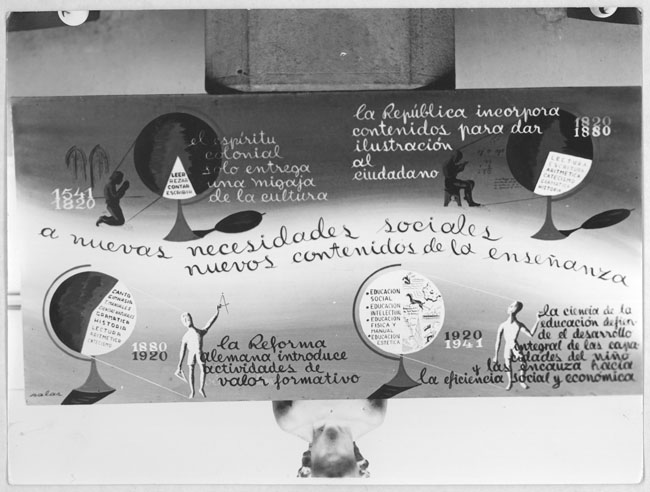 1541
1820
LEER
REZAR
CONTAR
ESCRIBIR
el espíritu
colonial
solo entrega
una migaja
de la cultura
la República incorpora
contenidos para dar
ilustración
al
ciudadano
1820
1880
LECTURA
ESCRITURA
ARITMETICA
CATECISMO
GRAMATICA
HISTORIA
a nuevas necesidades sociales
nuevos contenidos de la enseñanza
CANTO
GIMNASIA
C. NATURALES
GRAMATICA
HISTORIA
LECTURA
ARITMETICA
CATECISMO
1880
1920
la Reforma
alemana introduce
actividades de
valor formativo
EDUCACION
SOCIAL
EDUCACION
INTELECTUAL
EDUCACION
FISICA Y
MANUAL
EDUCACION
ESTETICA
1920
1941
la ciencia de la
educación defien-
de el desarrollo
integral de las capa-
cidades del niño
y las encauza hacia
la eficiencia social y económica